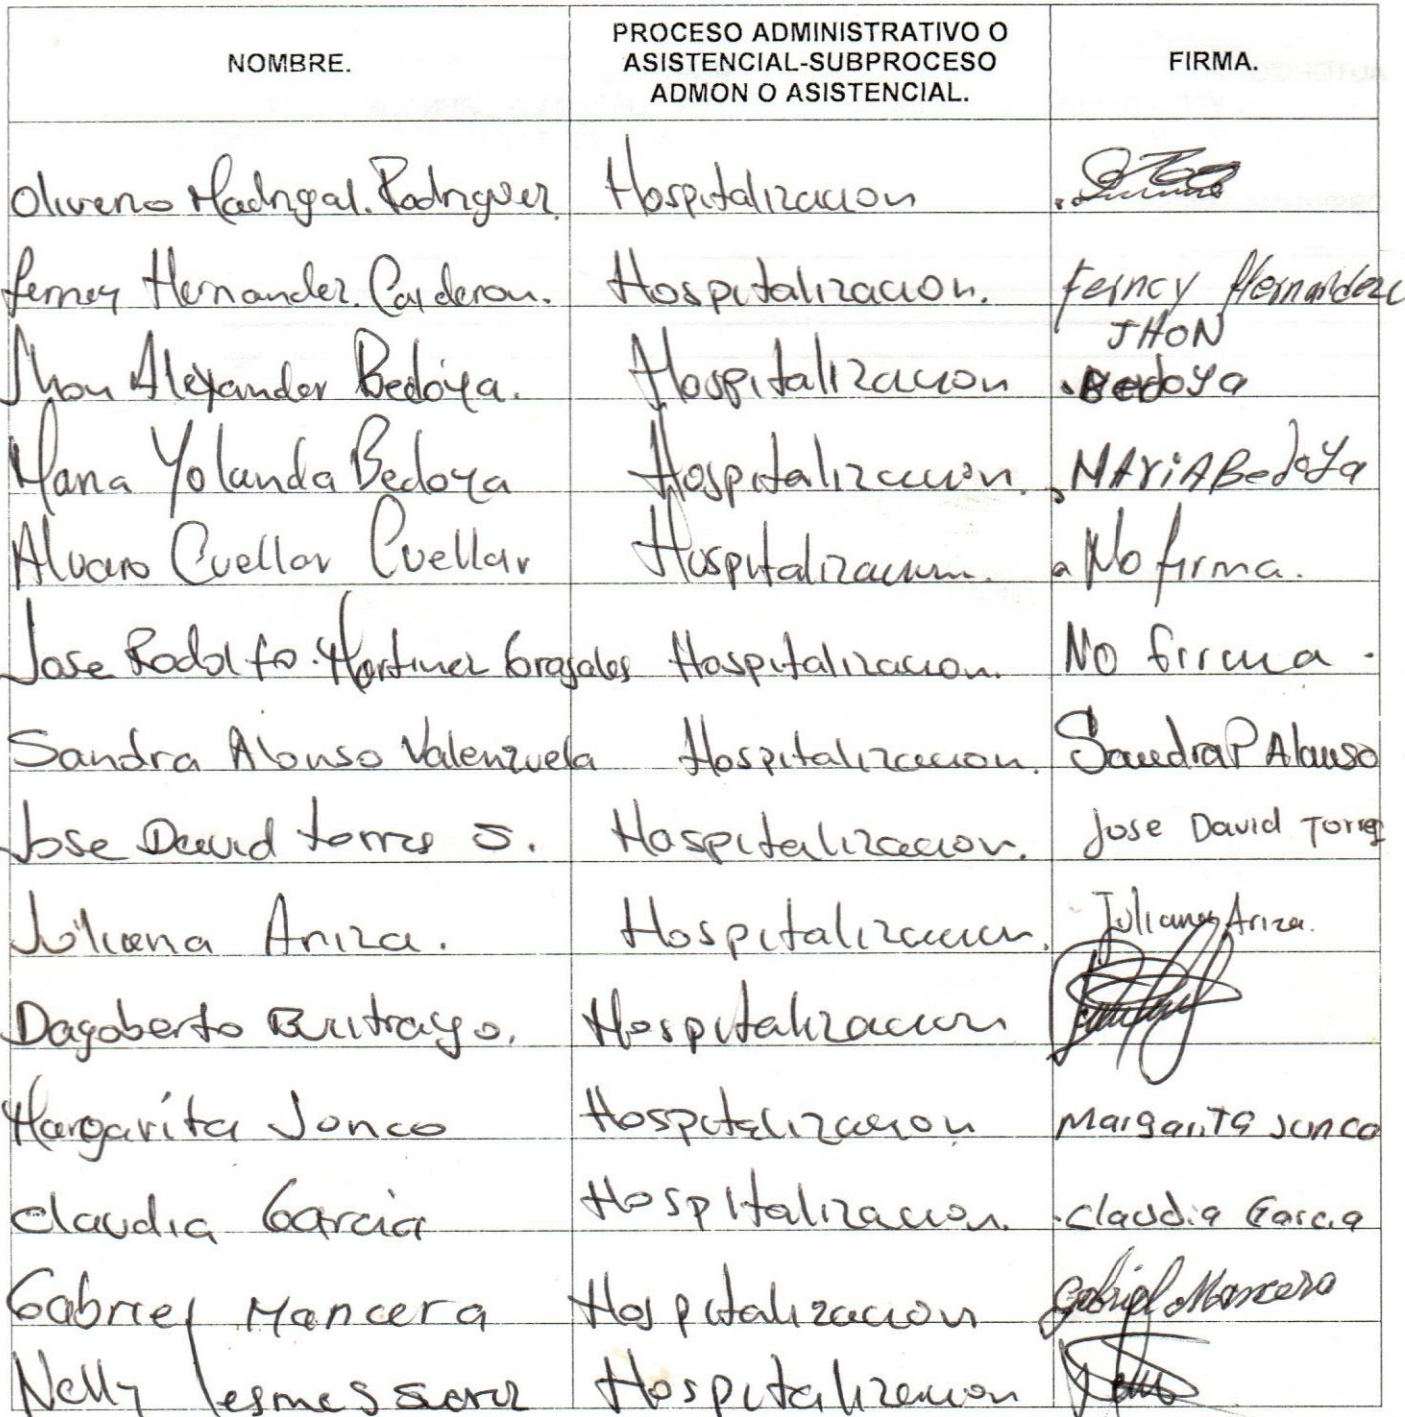 NOMBRE.
PROCESO ADMINISTRATIVO O
ASISTENCIAL-SUBPROCESO
ADMON O ASISTENCIAL.
FIRMA.
Oliverio Madrigal. Rodriguez Hospitalizacion
ferney Hernandez. Calderon. Hospitalizacion. ferney Hernandez C
Jhon Alexander Bedoya. Hospitalizacion JHON
Bedoya
Maria Yolanda Bedoya Hospitalizacion. MAriA Bedoya
Alvaro Cuellar Cuellar Hospitalizacion. No firma.
Jose Rodolfo. Martinez Grajales Hospitalizacion. No firma.
Sandra Alonso Valenzuela Hospitalizacion. Sandra P Alonso
Jose David torres S. Hospitalizacion. Jose David Torres
Juliana Ariza. Hospitalizacion. Juliana Ariza.
Dagoberto Buitrago. Hospitalizacion
Margarita Junco Hospitalizacion Margarita junco
Claudia Garcia Hospitalizacion. Claudia Garcia
Gabriel Mancera Hospitalizacion Gabriel Mancera
Nelly lesmes Hospitalizacion